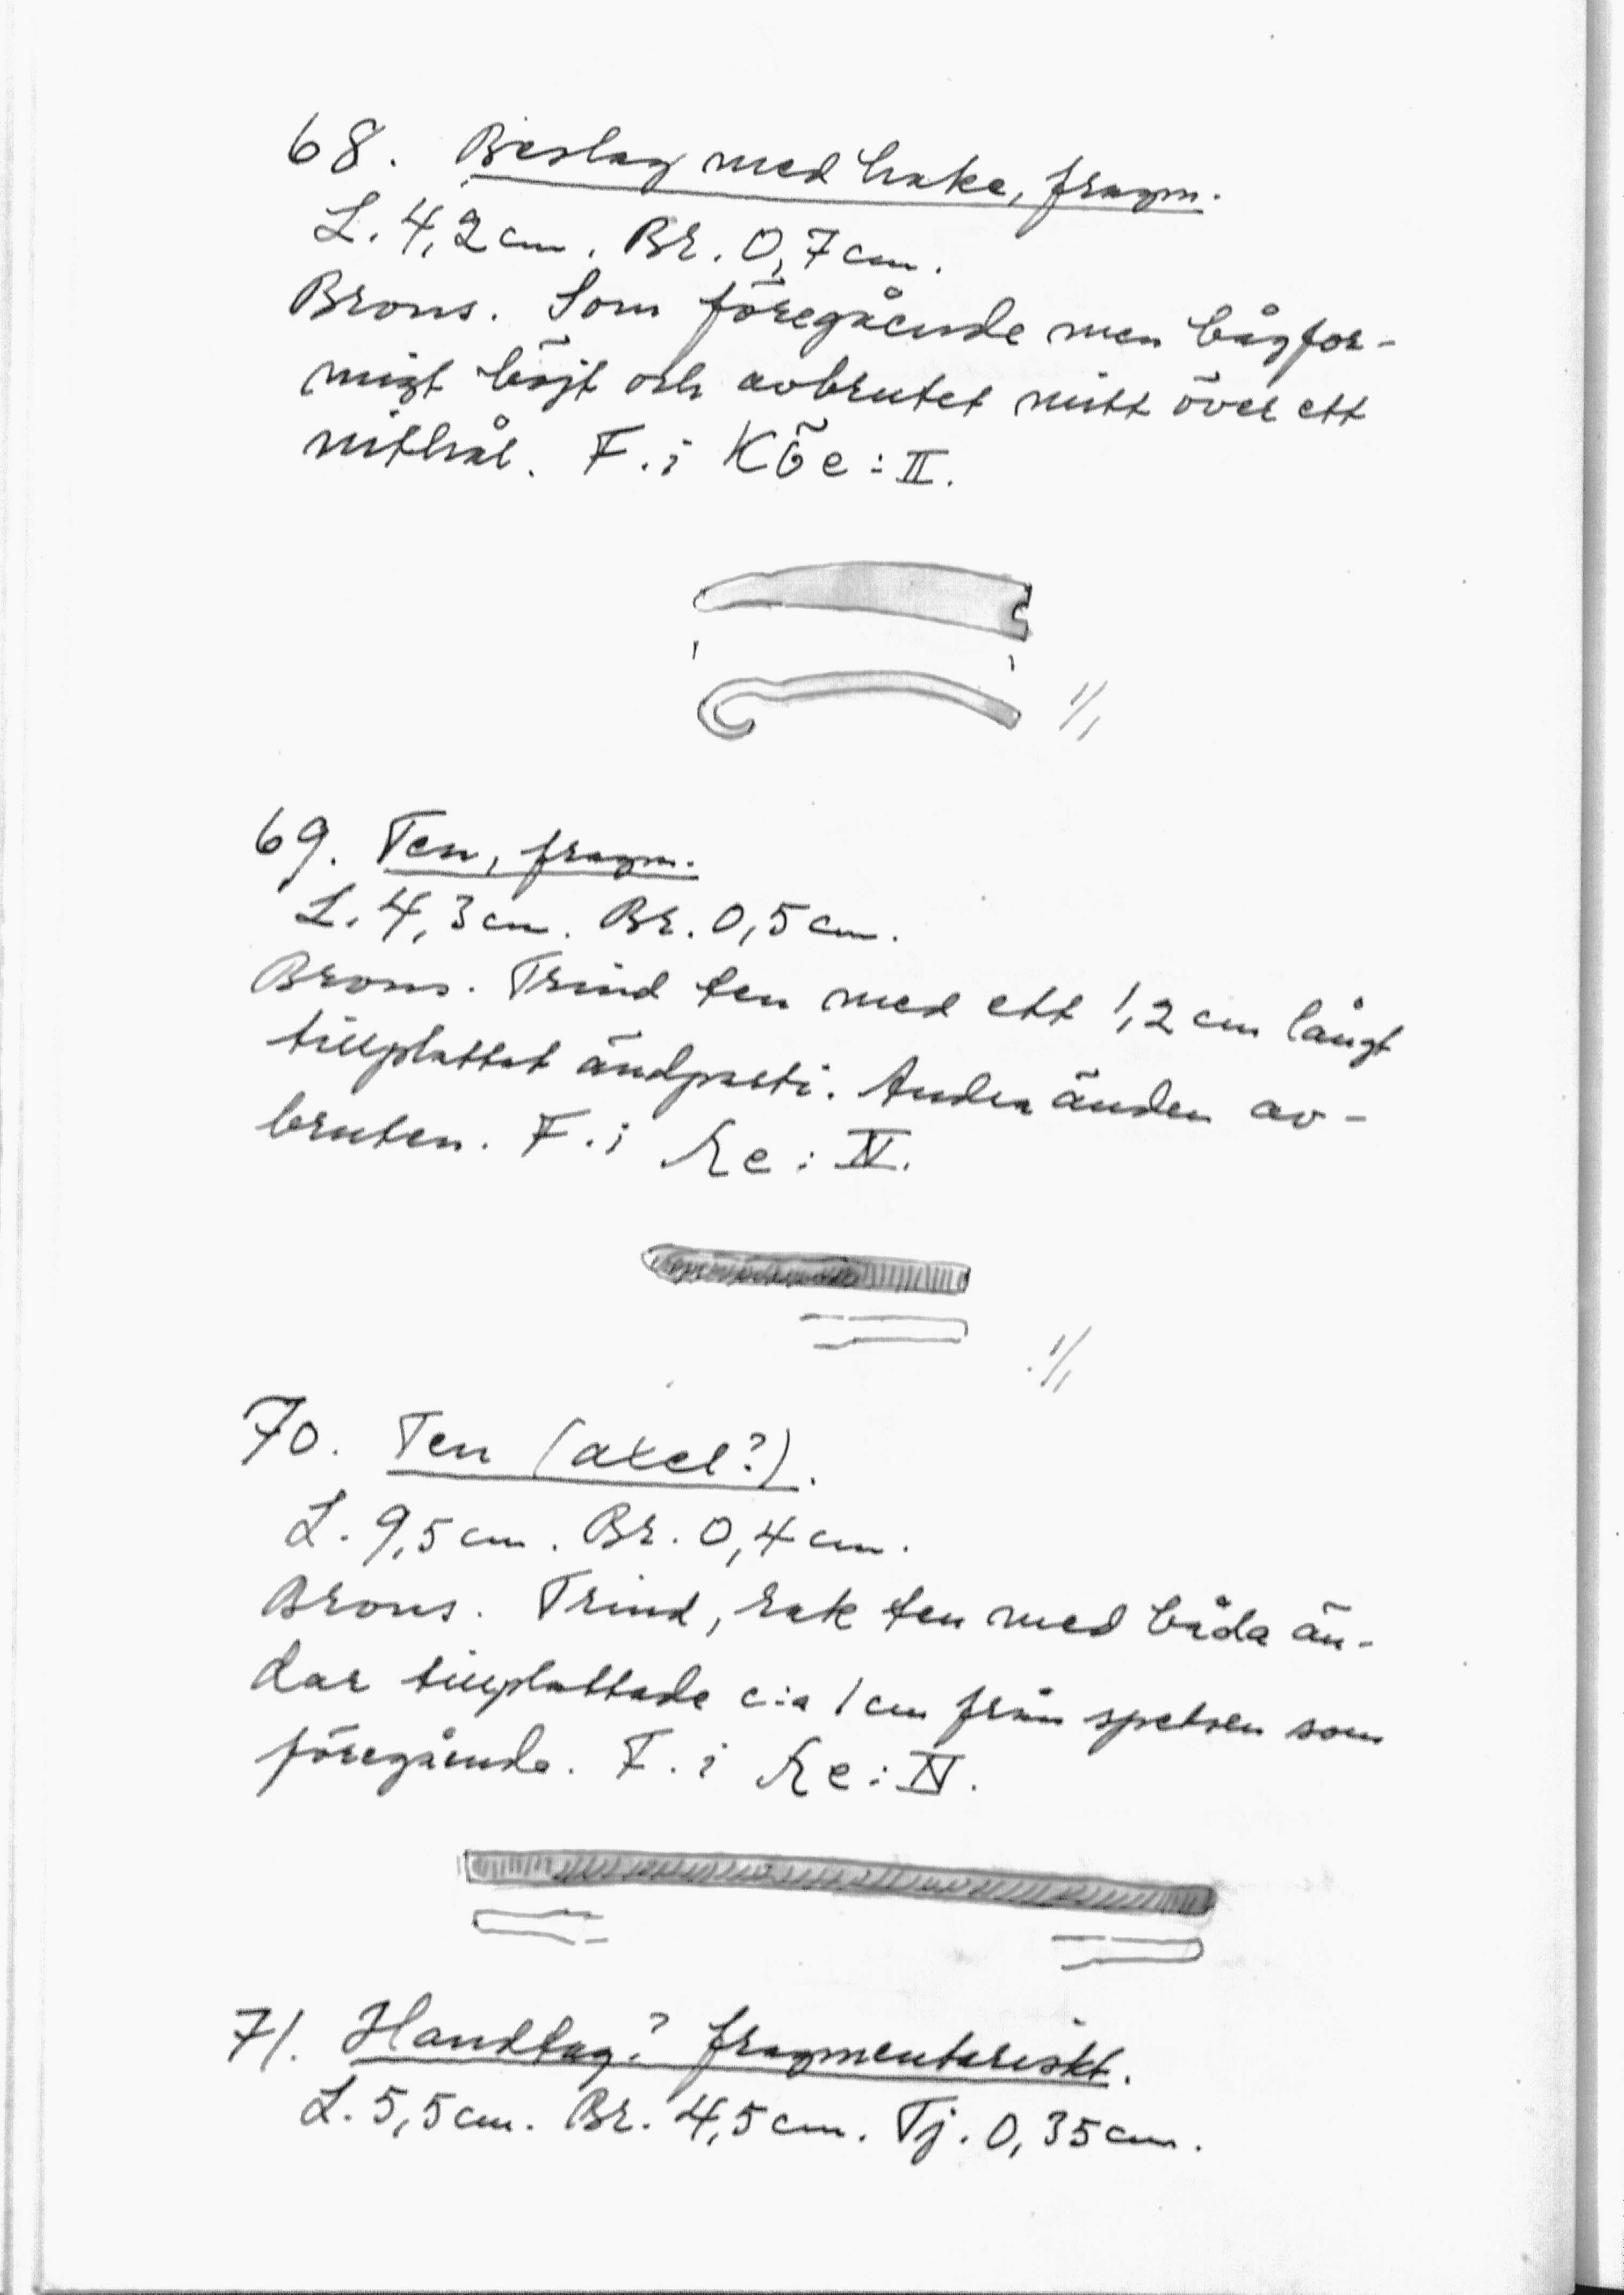 68. Beslag med hake, fragm.
L. 4,2 cm. Br. 0,7 cm.
Brons. Som föregående men bågfor-
migt böjt och avbrutet mitt över ett
nithål. F. i KÖe: II.
1/1
69. Ten, fragm.
L. 4,3 cm. Br. 0,5 cm.
Brons. Trind ten med ett 1,2 cm långt
tillplattat ändparti. Andra änden av-
bruten. F. i Re: IV.
1/1
70. Ten (axel?).
L. 9,5 cm. Br. 0,4 cm.
Brons. Trind, rak ten med båda än-
dar tillplattade c:a 1 cm från spetsen som
föregående. F. i Re: IV.
71. Handtag? fragmentariskt.
L. 5,5 cm. Br. 4,5 cm. Tj. 0,35 cm.